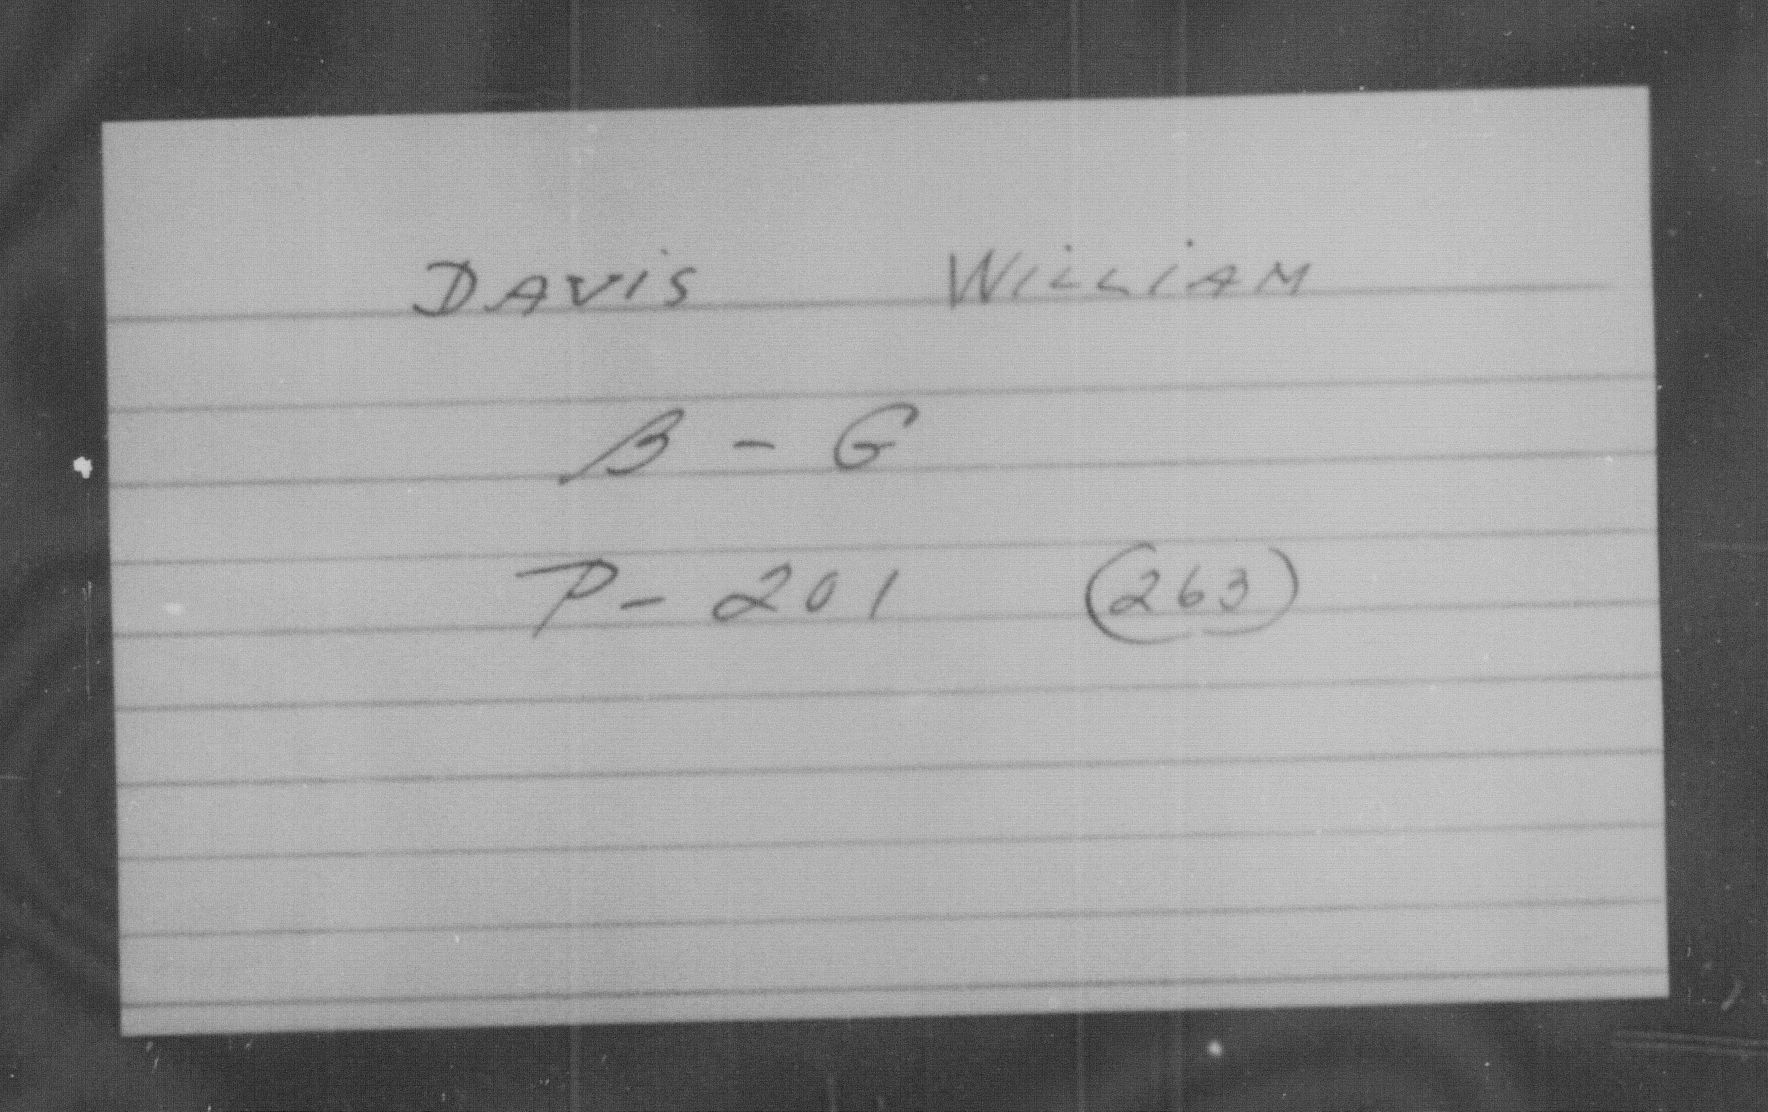 DAVIS WILLIAM
B - G
P - 201 (263)